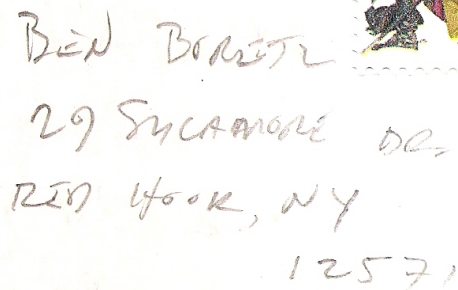 BEN BORETZ
29 SYCAMORE DR.
RED HOOK, NY
12571